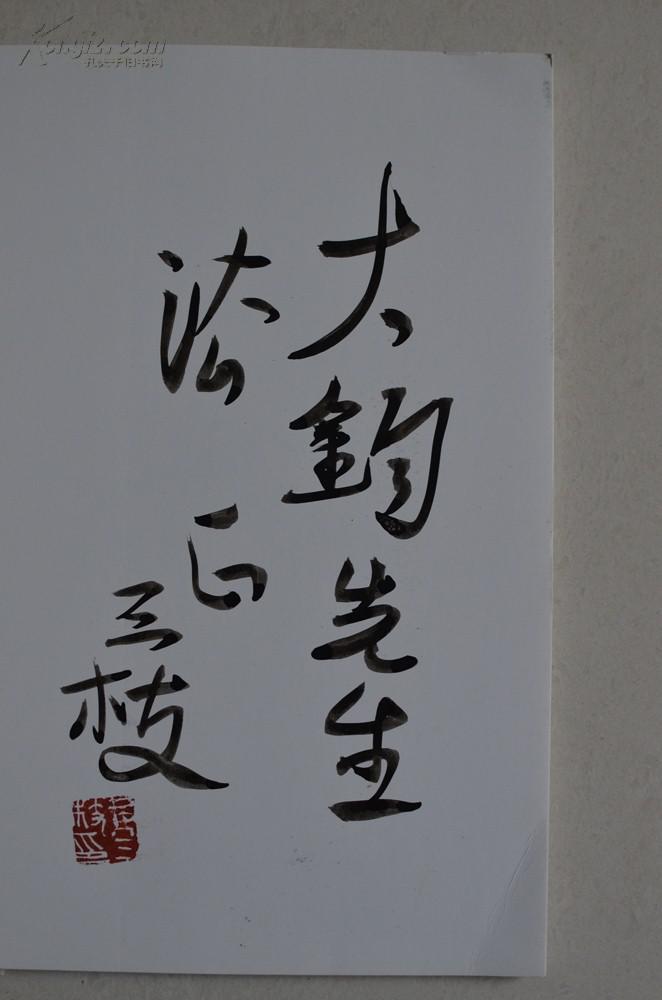 大钧先生
法正
三枝
Kongfz.com
孔夫子旧书网